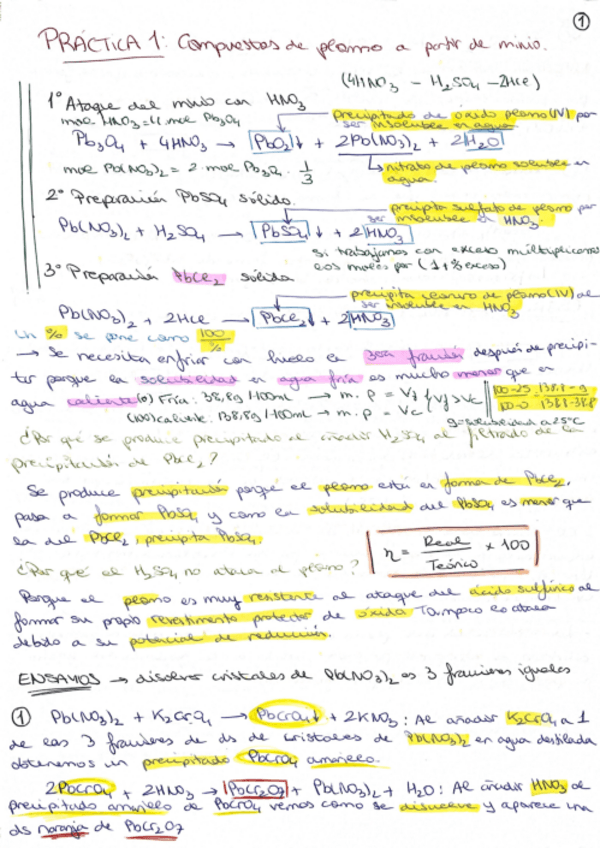 1
PRÁCTICA 1: Compuestos de plomo a partir de minio.
(4HNO3 - H2SO4 - 2HCl)
1º Ataque del minio con HNO3
mol HNO3 = 4·mol Pb3O4
precipitado de óxido plomo(IV) por
ser insoluble en agua
Pb3O4 + 4HNO3 → PbO2↓ + 2Pb(NO3)2 + 2H2O
mol Pb(NO3)2 = 2·mol Pb3O4 · 1/3
nitrato de plomo soluble en
agua.
2º Preparación PbSO4 sólido.
precipita sulfato de plomo por
ser insoluble en HNO3.
Pb(NO3)2 + H2SO4 → PbSO4↓ + 2HNO3
si trabajamos con exceso multiplicamos
los moles por (1+% exceso)
3º Preparación PbCl2 sólido
precipita cloruro de plomo(IV) al
ser insoluble en HNO3
Pb(NO3)2 + 2HCl → PbCl2↓ + 2HNO3
Un % se pone como 100/%
→ Se necesita enfriar con hielo la 3era fracción después de precipi-
tar porque la solubilidad en agua fría es mucho menor que en
agua caliente (0) Fría: 38,8g/100mL → m.p = Vf
(100) caliente: 138,8g/100mL → m.p = Vc
} Vf > Vc
100-25/100-0 = 138.8-g/138.8-38.8
g = solubilidad a 25ºC
¿Por qué se produce precipitado al añadir H2SO4 al filtrado de la
precipitación de PbCl2?
Se produce precipitación porque el plomo está en forma de PbCl2,
pasa a formar PbSO4 y como la solubilidad del PbSO4 es menor que
la del PbCl2, precipita PbSO4.
η = Real/Teórico × 100
¿Por qué el H2SO4 no ataca al plomo?
Porque el plomo es muy resistente al ataque del ácido sulfúrico al
formar su propio revestimiento protector de óxido. Tampoco lo ataca
debido a su potencial de reducción.
ENSAYOS → disolver cristales de Pb(NO3)2 en 3 fracciones iguales
1 Pb(NO3)2 + K2CrO4 → PbCrO4↓ + 2KNO3: Al añadir K2CrO4 a 1
de las 3 fracciones de ds de cristales de Pb(NO3)2 en agua destilada
obtenemos un precipitado PbCrO4 amarillo.
2PbCrO4 + 2HNO3 → PbCr2O7 + Pb(NO3)2 + H2O: Al añadir HNO3 al
precipitado amarillo de PbCrO4 vemos como se disuelve y aparece una
ds naranja de PbCr2O7